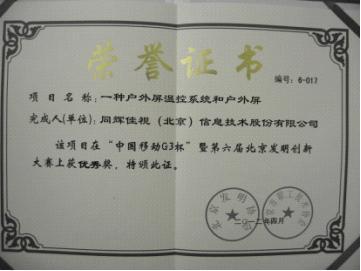 荣誉证书
编号:6-017
项目名称:一种户外屏温控系统和户外屏
完成人(单位):同辉佳视（北京）信息技术股份有限公司
该项目在“中国移动G3杯”暨第六届北京发明创新
大赛上获优秀奖，特颁此证。
北京发明协会
二〇一二年四月